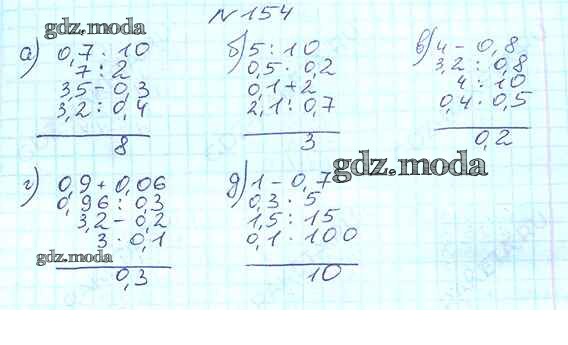 № 154
gdz.moda
а) 0,7 · 10
7 : 2
3,5 - 0,3
3,2 : 0,4
8
б) 5 : 10
0,5 · 0,2
0,1 + 2
2,1 : 0,7
3
в) 4 - 0,8
3,2 : 0,8
4 : 10
0,4 · 0,5
0,2
gdz.moda
г) 0,9 + 0,06
0,96 : 0,3
3,2 - 0,2
3 · 0,1
0,3
gdz.moda
д) 1 - 0,7
0,3 · 5
1,5 : 15
0,1 · 100
10